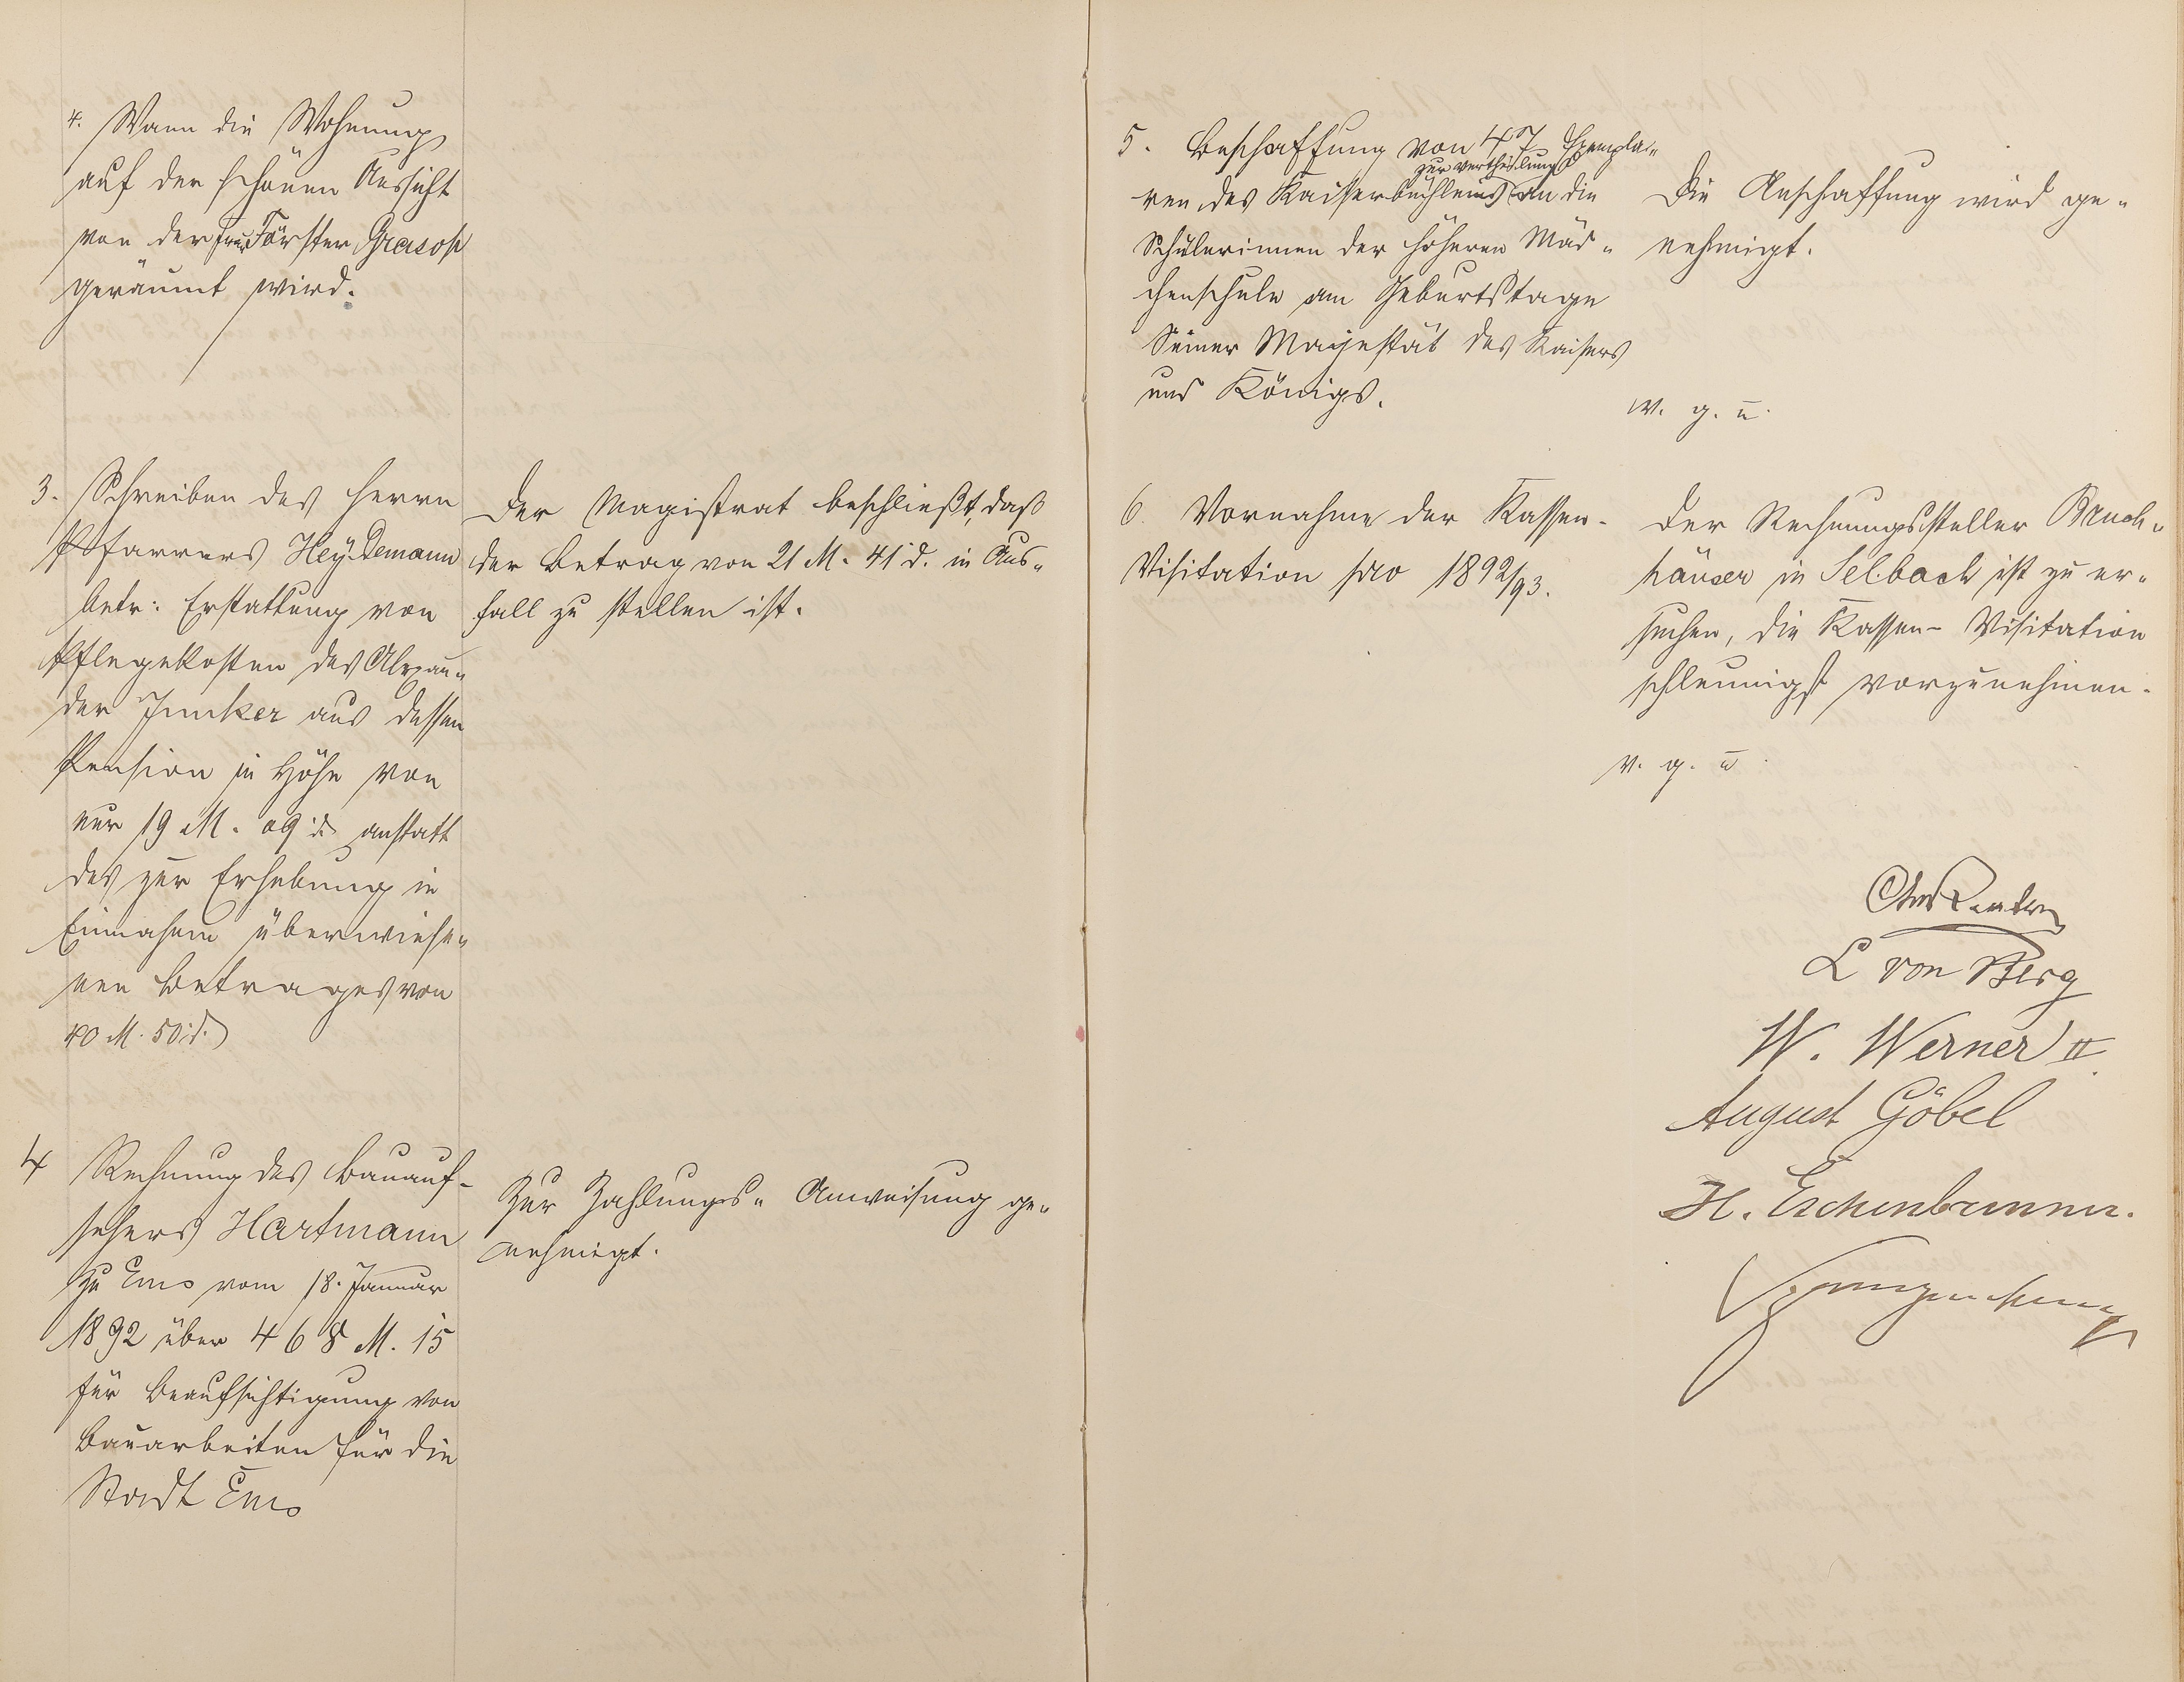 4. Wann die Wohnung
auf der schönen Aussicht
von der Frau Förster Grasop
geräumt wird.
3. Schreiben des Herrn
Pfarrers Heydemann
betr: Erstattung von
Pflegekosten des Alexan-
der Junker aus dessen
Pension in Höhe von
nur 19 M. 09 d. anstatt
des zur Erhebung in
Einnahme überwiese-
nen Betrages von
40 M. 50 d.
Der Magistrat beschließt, daß
der Betrag von 21 M. 41 d. in Aus-
fall zu stellen ist.
4 Rechnung des Bauauf-
sehers Hartmann
zu Ems vom 18. Januar
1892 über 468 M. 15
für Beaufsichtigung von
Bauarbeiten für die
Stadt Ems
Zur Zahlungs- Anweisung ge-
nehmigt.
5. Beschaffung von 47 Exempla-
zur Vertheilung
ren des Kaiserbüchleins an die
Schülerinnen der höheren Mäd-
chenschule am Geburtstage
Seiner Majestät des Kaisers
und Königs.
Die Anschaffung wird ge-
nehmigt.
v. g. u.
6. Vornahme der Kassen-
Visitation pro 1892/93.
Der Rechnungssteller Bruch-
häuser in Selbach ist zu er-
suchen, die Kassen- Visitation
schleunigst vorzunehmen.
v. g. u.
L von Berg
W. Werner II
August Göbel
H. Eschenbrenner.